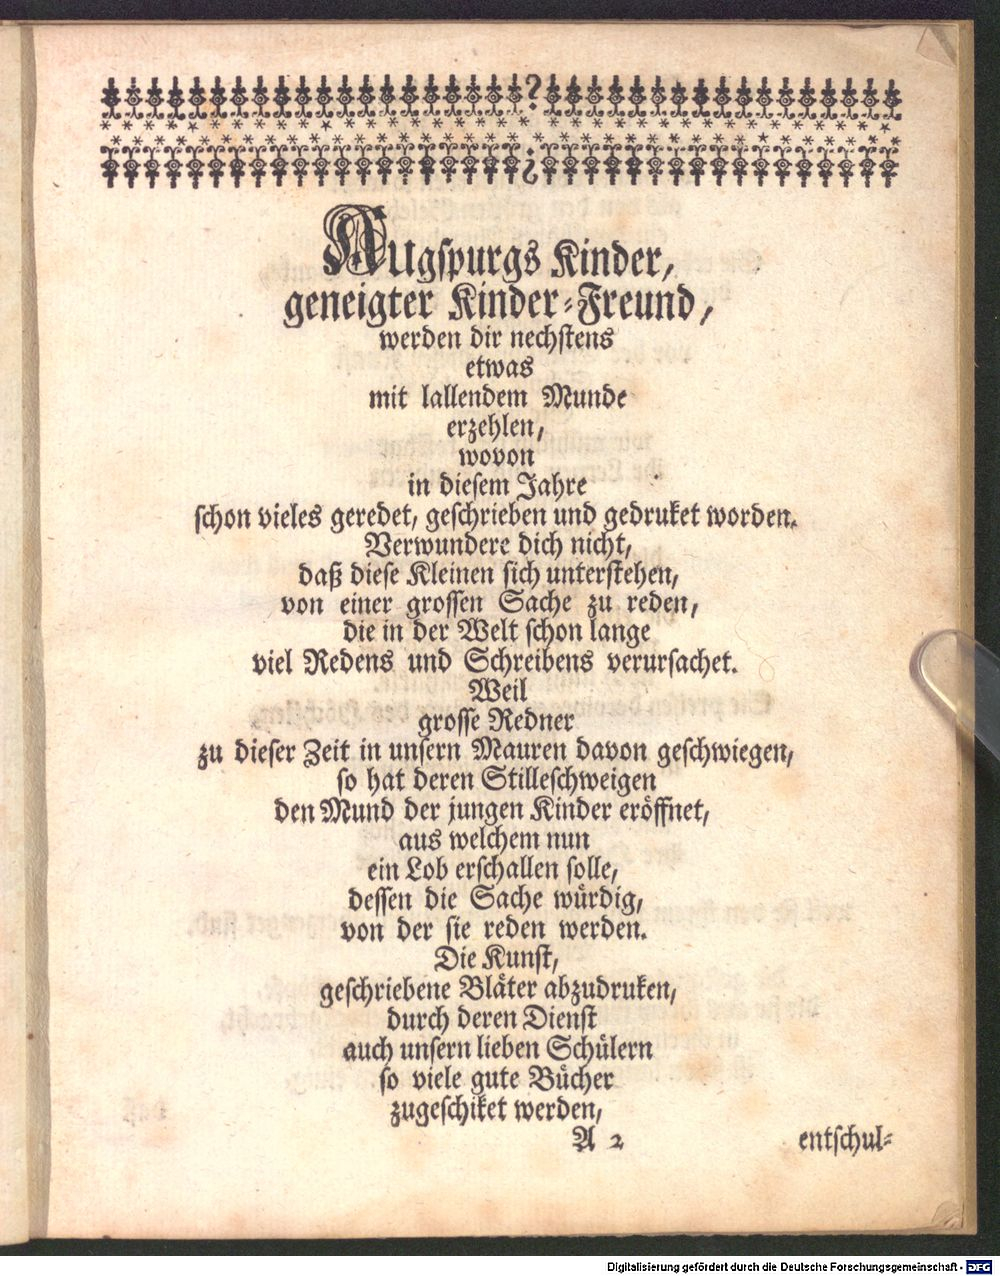 Augspurgs Kinder,
geneigter Kinder-Freund,
werden dir nechstens
etwas
mit lallendem Munde
erzehlen,
wovon
in diesem Jahre
schon vieles geredet, geschrieben und gedruket worden.
Verwundere dich nicht,
daß diese Kleinen sich unterstehen,
von einer grossen Sache zu reden,
die in der Welt schon lange
viel Redens und Schreibens verursachet.
Weil
grosse Redner
zu dieser Zeit in unsern Mauren davon geschwiegen,
so hat deren Stilleschweigen
den Mund der jungen Kinder eröffnet,
aus welchem nun
ein Lob erschallen solle,
dessen die Sache würdig,
von der sie reden werden.
Die Kunst,
geschriebene Bläter abzudruken,
durch deren Dienst
auch unsern lieben Schülern
so viele gute Bücher
zugeschiket werden,
A 2 entschul-
Digitalisierung gefördert durch die Deutsche Forschungsgemeinschaft - DFG